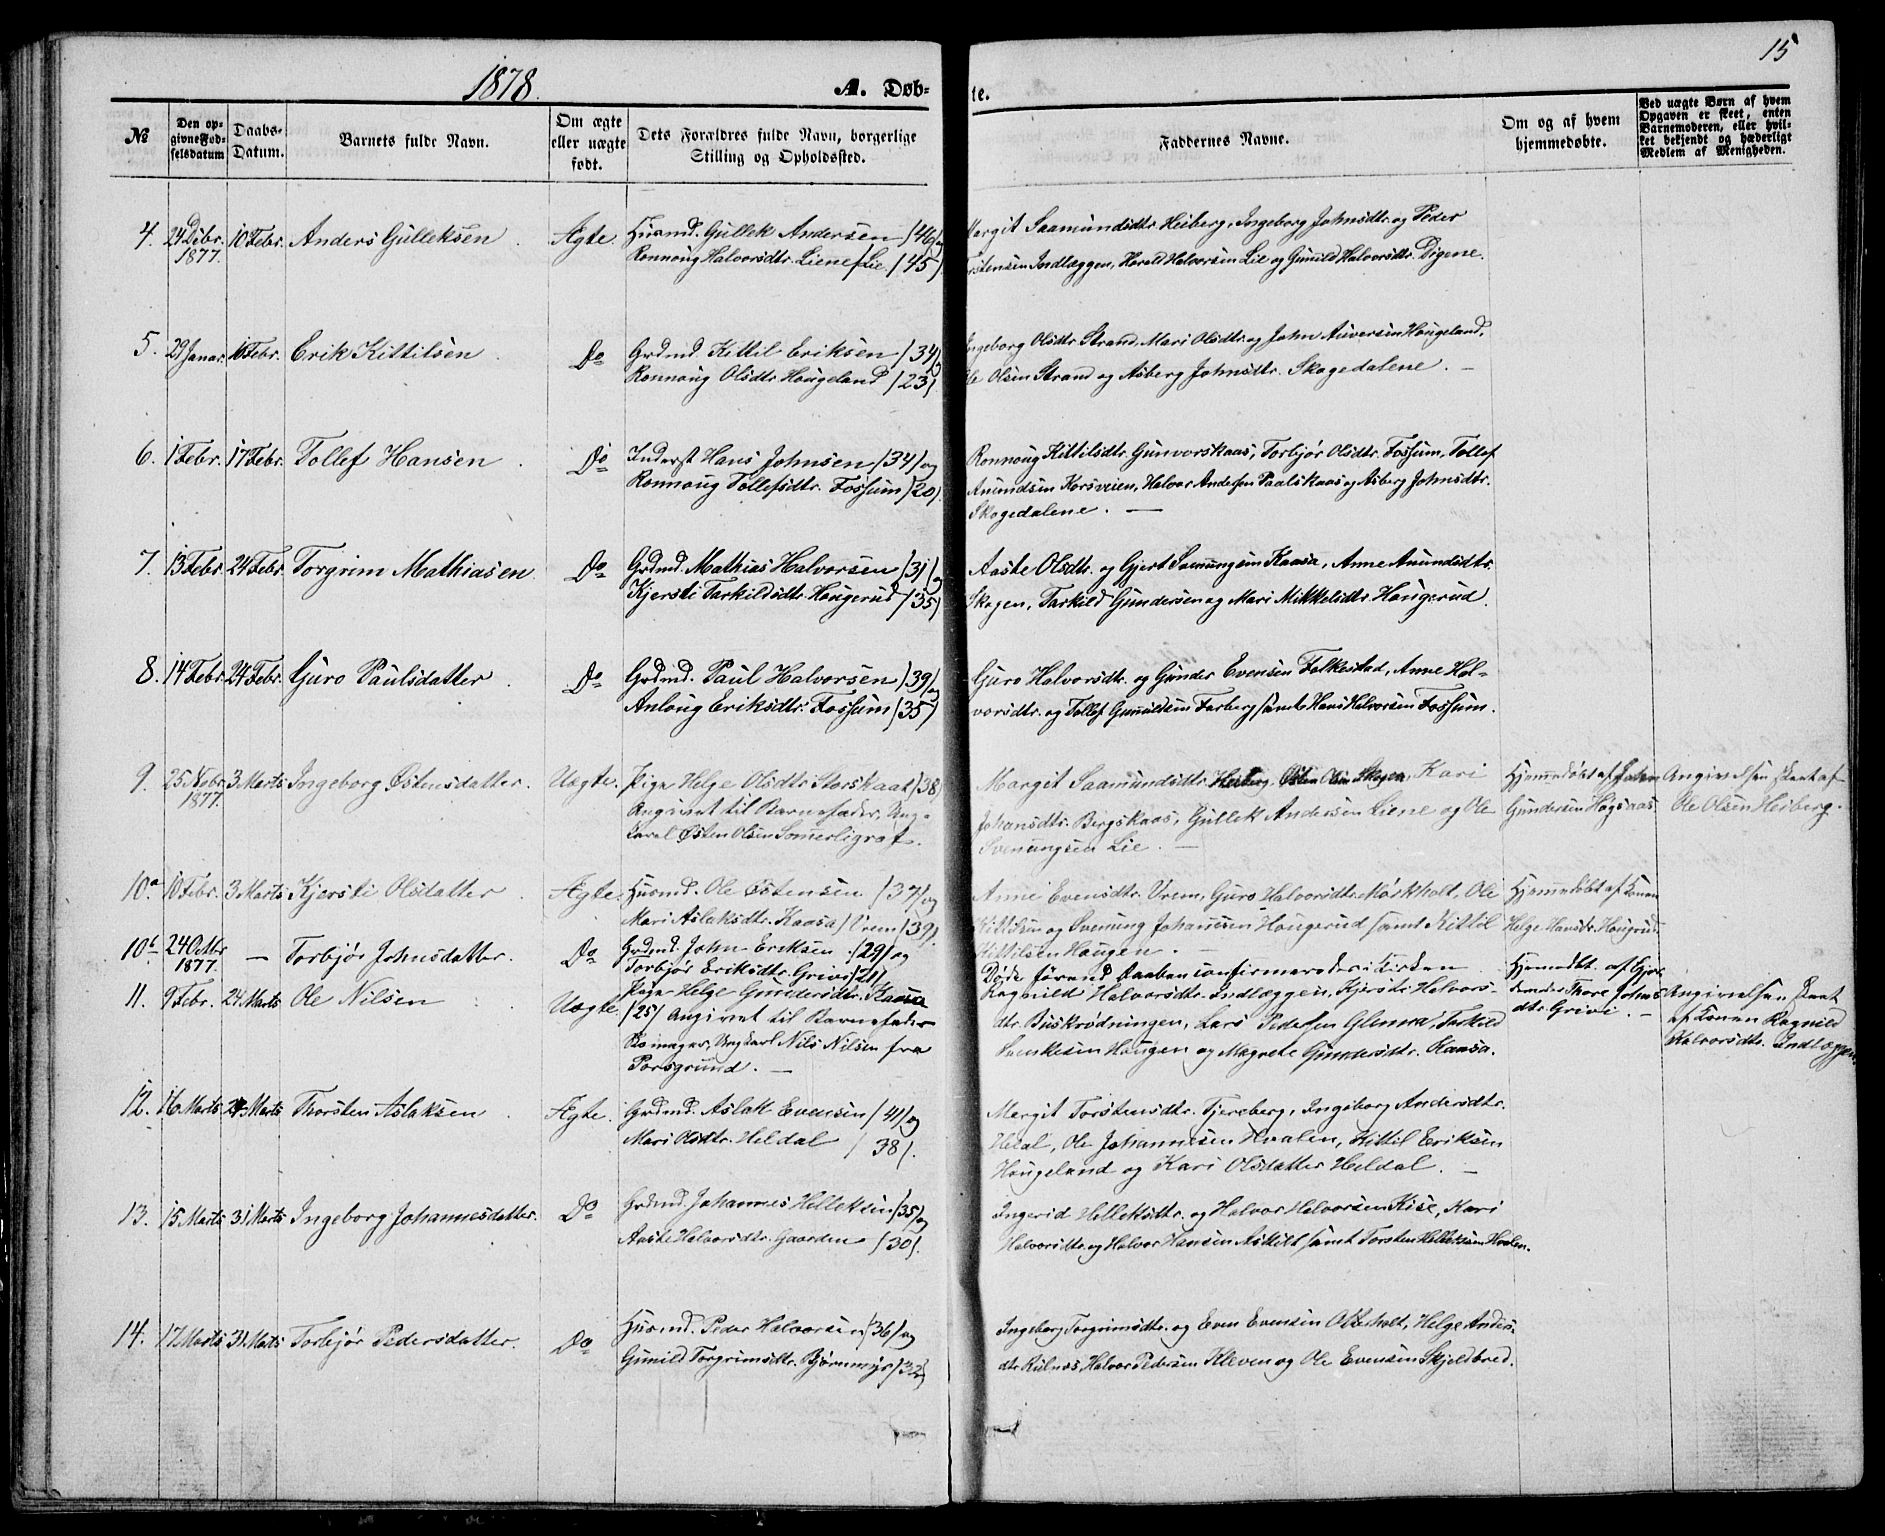 15
1878.
A. Døb-
te.
№
Den op-
givne Fød-
selsdatum
Daabs-
Datum.
Barnets fulde Navn.
Om ægte
eller uægte
født.
Dets Forældres fulde Navn, borgerlige
Stilling og Opholdssted.
Faddernes Navne.
Om og af hvem
hjemmedøbte.
Ved uægte Børn af hvem
Opgaven er skeet, enten
Barnemoderen, eller hvil-
ket bekjendt og hæderligt
Medlem af Menigheden.
4. 24 Debr. 1877. 10 Febr. Anders Gulleksen. Ægte. Husmd. Gullek Andersen /46/ og
Ronnoug Halvorsdtr. Liene / Lie /45/
Margit Saamundsdtr. Heiberg, Ingeborg Johnsdtr. og Peder
Torstensen Indlæggen, Harald Halvorsen Lie og Gunild Halvorsdtr. Digene.
5. 29 Janar. 10 Febr. Erik Kittilsen. Do Grdmd. Kittil Eriksen /34/ og
Ronnoug Olsdtr. Hougeland /23/
Ingeborg Olsdtr. Strand, Mari Olsdtr. og John Auversen Hougeland,
Ole Olsen Strand og Asberg Johnsdtr. Skogedalene. —
6. 1 Febr. 17 Febr. Tollef Hansen. Do Inderst Hans Johnsen /34/ og
Ronnoug Tollefsdtr. Fossum /20/
Ronnoug Kittilsdtr. Gunvorskaas, Torbjør Olsdtr. Fossum, Tollef
Anundsen Korsveien, Halvor Andersen Paalskaas og Asberg Johnsdtr.
Skogedalene. —
7. 13 Febr. 24 Febr. Torgrim Mathiasen. Do Grdmd. Mathias Halvorsen /31/ og
Kjersti Tarkildsdtr. Hougerud /35/
Aaste Olsdtr. og Gjert Sveinungsen Kaasa, Anne Anundsdtr.
Skogen, Tarkild Gundersen og Mari Mikkelsdtr. Hougerud.
8. 14 Febr. 24 Febr. Guro Paulsdatter. Do Grdmd. Paul Halvorsen /39/ og
Anloug Eriksdtr. Fossum /35/
Guro Halvorsdtr. og Gunder Evensen Folkestad, Anne Hal-
vorsdtr. og Tollef Gunuldsen Farberg samt Hans Halvorsen Fossum.
9. 25 Nobr. 1877. 3 Marts Ingeborg Østensdatter. Uægte. Pige Helge Olsdtr. Storskaas /38/
Angivet til Barnefader, Ung-
karl Østen Olsen Somerligrof.
Margit Saamundsdtr. Heiberg, Østen Olsen Skogen, Kari
Johansdtr. Bergskaas, Gullek Andersen Liene og Ole
Svenungsen Lie. —
Hjemmedøbt af John
Gundersen Høgsaas
Angivelsen skeet af
Ole Olsen Heiberg.
10a 10 Febr. 3 Marts Kjersti Olsdatter. Ægte. Husmd. Ole Østensen /37/ og
Mari Aslaksdtr. Kaasa / Vrem /39/.
Anne Evensdtr. Vrem, Guro Halvorsdtr. Mørkholt, Ole
Kittilsen og Svenung Johansen Hougerud samt Kittil
Kittilsen Haugen. —
Hjemmedøbt af Konen
Helge Hansdtr. Hougrud.
10b 24 Octbr 1877. — Torbjør Johnsdatter. Do Grdmd. John Eriksen /29/ og
Torbjør Eriksdtr. Grivi /21/
Døde førend Daaben confirmeredes i Kirken.
Hjemmedbt. af Gjor
demoder Thore Johns
dtr. Grivi. —
11. 9 Febr. 24 Marts Ole Nilsen Uægte Pige Helge Gundersdtr. Kaasa
/25/ Angivet til Barnefader
Bo inager, Ungkarl Nils Nilsen fra
Porsgrund. —
Ragnild Halvorsdtr. Indlæggen, Kjersti Halvors-
dtr. Buskrødningen, Lars Pedersen Glenna, Tarkild
Svenkesen Haugen og Magrete Gundersdtr. Kaasa.
Angivelsen skeet
af Konen Ragnild
Halvorsdtr. Indlæggen.
12. 16 Marts 24 Marts Thorsten Aslaksen. Ægte. Grdmd. Aslak Evensen /41/ og
Mari Olsdtr. Heldal /38/.
Margit Torstensdtr. Tjereberg, Ingeborg Andersdtr.
Heial, Ole Johannesen Hvalen, Kittil Eriksen
Hougeland og Kari Olsdatter Heldal. —
13. 15 Marts 31 Marts Ingeborg Johannesdatter. Do Grdmd. Johannes Helleksen /35/ og
Aaste Halvorsdtr. Gaarden /30/.
Ingerid Helleksdtr. og Halvor Halvorsen Kise, Kari
Halvorsdtr. og Halvor Hansen Askilt samt Torsten Helleksen Hvalen.
14. 17 Marts 31 Marts Torbjør Pedersdatter. Do Husmd. Peder Halvorsen /36/ og
Gunild Torgrimsdtr. Bjørnmyr /32/
Ingeborg Torgrimsdtr. og Even Evensen Otterholt, Helge Anders-
dtr. Rulnæs, Halvor Pedersen Kleven og Ole Evensen Skjeldbred.